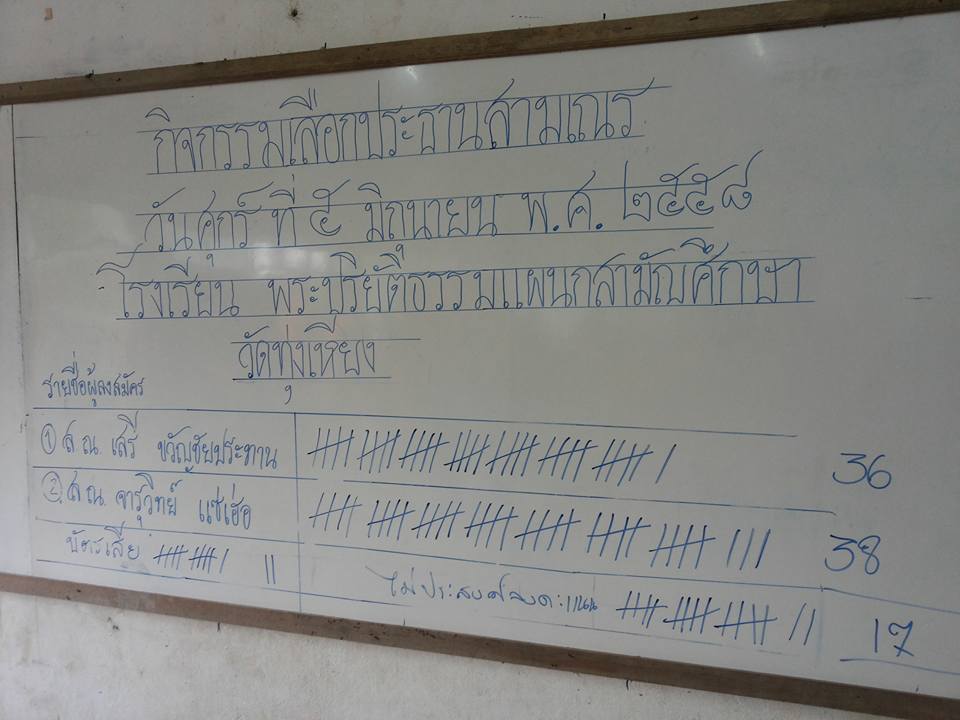 กิจกรรมเลือกประธานสามเณร
วันศุกร์ ที่ ๕ มิถุนายน พ.ศ. ๒๕๕๘
โรงเรียน พระปริยัติธรรมแผนกสามัญศึกษา
วัดทุ่งเหียง
รายชื่อผู้ลงสมัคร
① ส.ณ. เสรี ขวัญชัยประทาน 36
② ส.ณ. จารุวิทย์ แซ่เฮ่อ 38
บัตรเสีย 11
ไม่ประสงค์ลงคะแนน 17